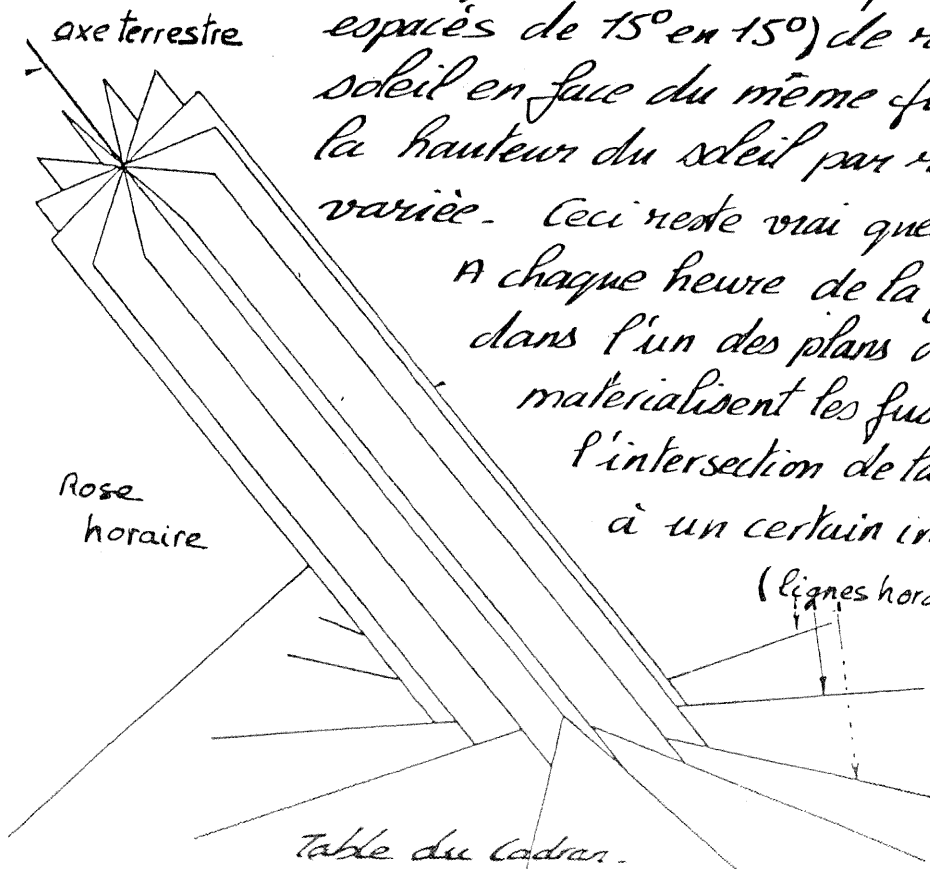 axe terrestre
espacés de 15° en 15°) de
soleil en face du même
la hauteur du soleil par
variée. Ceci reste vrai
A chaque heure de la
dans l'un des plans
matérialisent les
l'intersection de
à un certain
Rose
horaire
(lignes
Table du Cadran.